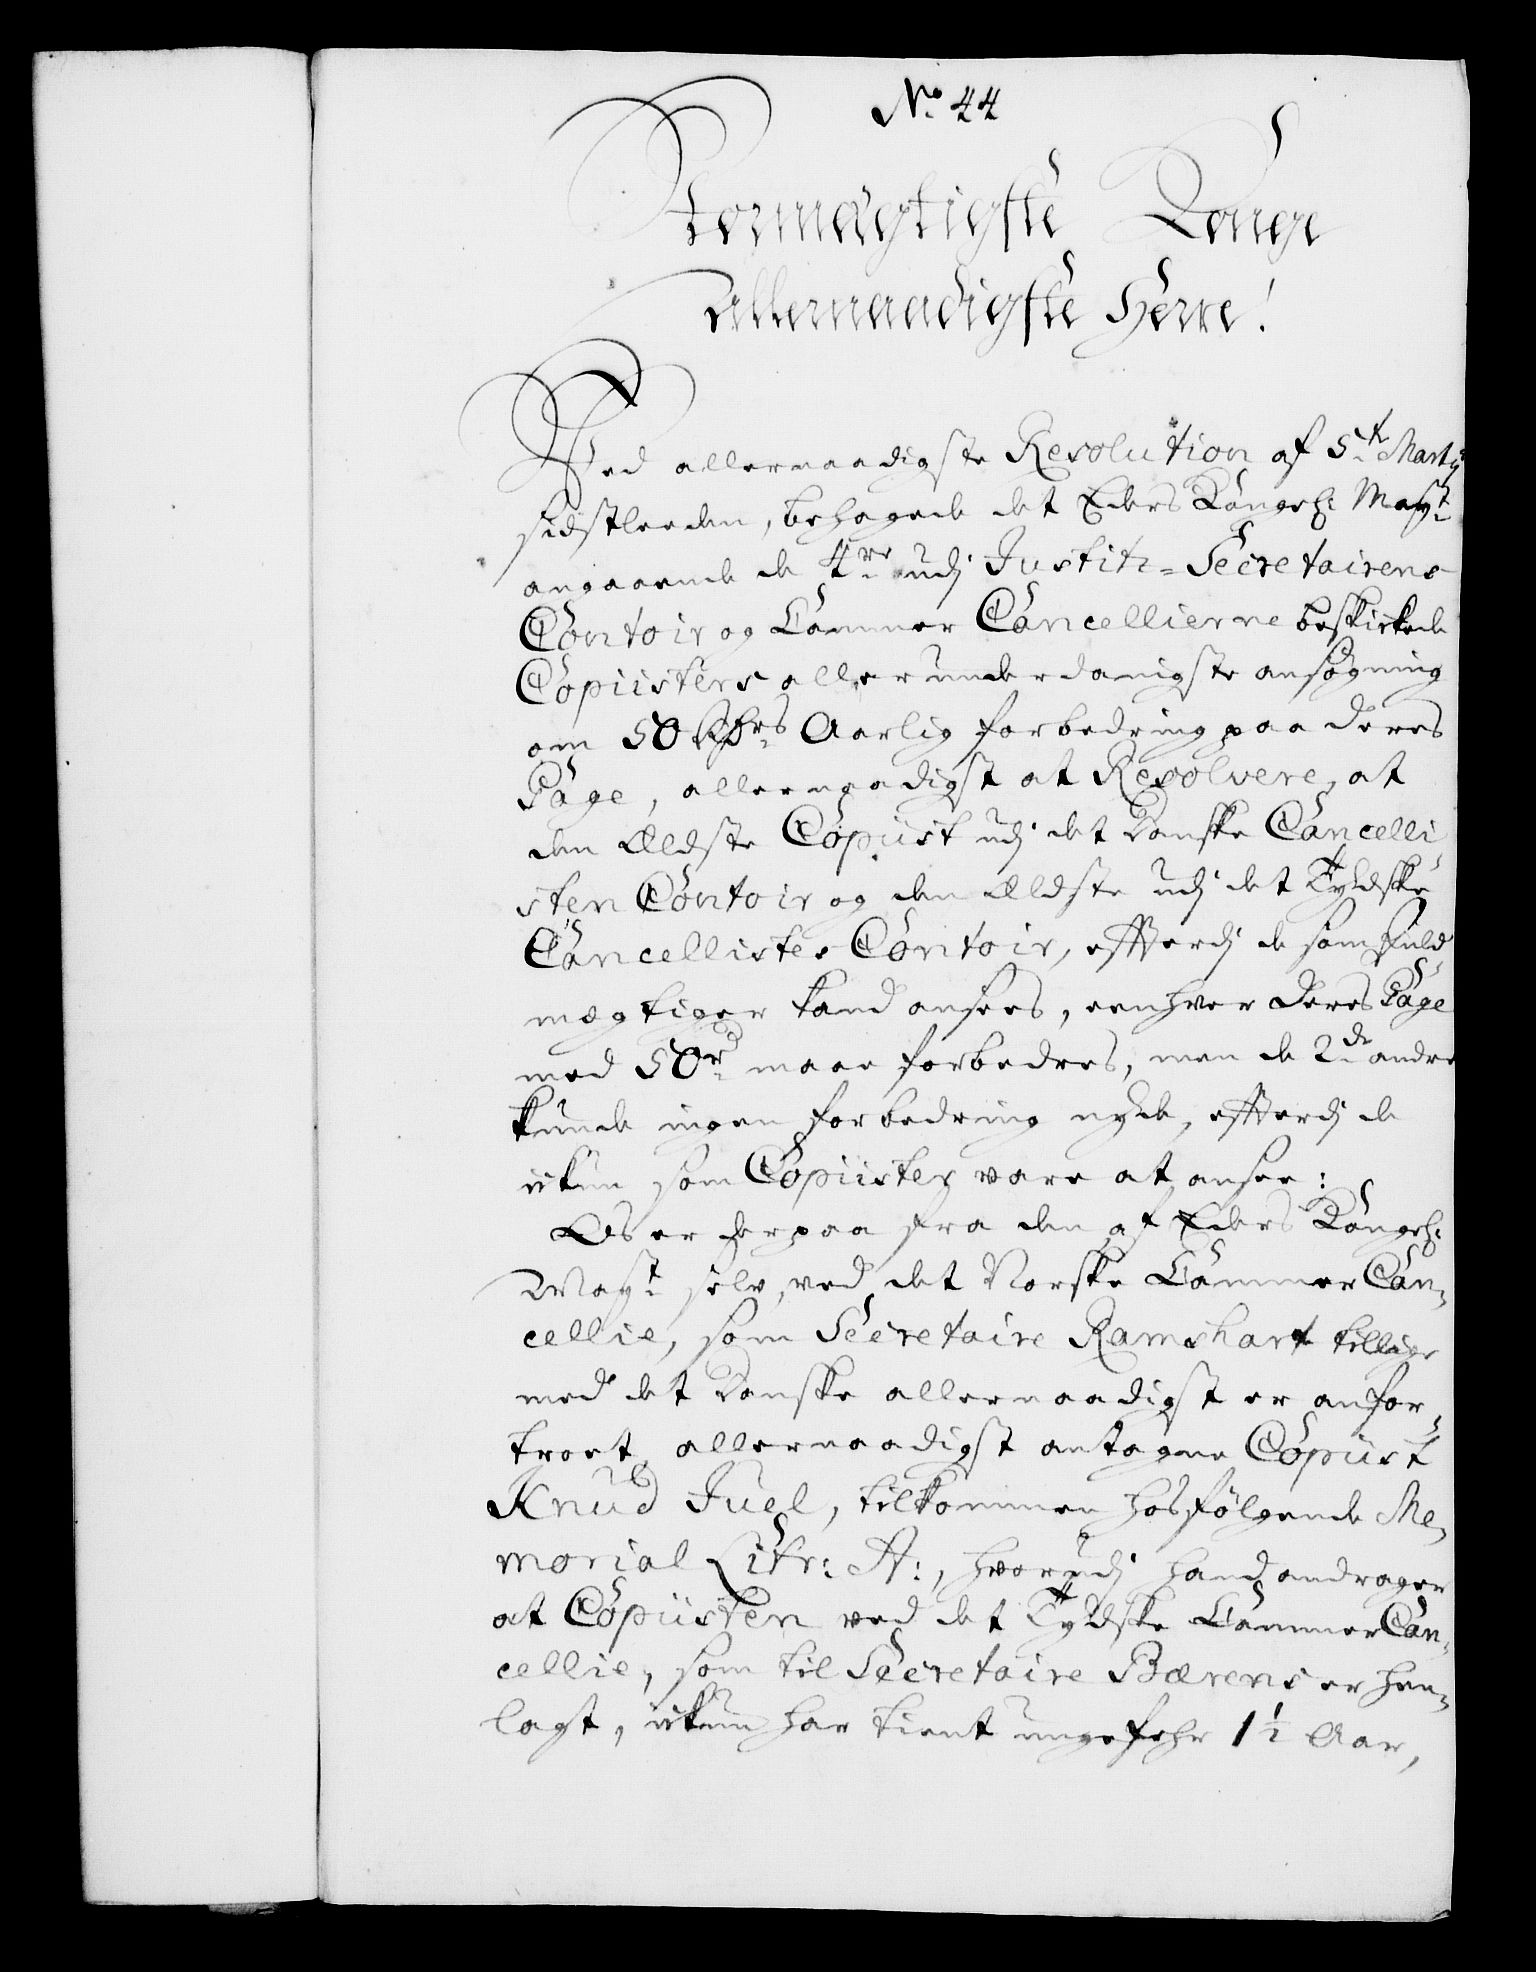 No. 44
Stormægtigste Konge
Allernaadigste Herre!
Ved allernaadigste Resolution af 5te Martij
sidstleeden, behagede det Eders Kongel: Mayt.
angaaende de 4re udj Justitz-Secretairens
Contoir og Cammer Cancellierne beskickede
Copiisters allerunderdanigste ansøgning
om 50 Rdrs Aarlig forbedring paa deres
Gage, allernaadigst at Resolvere, at
den Eldste Copiist udj det Danske Cancelli
sten Contoir og den Eldste udj det Tydske
Cancellistes Contoir, efftterdj de som fuld,,
mægtiger kand ansees, eenhver deres Gage
med 50rd maae forbedres, men de 2de andre
kunde ingen forbedring nyde, effterdj de
ickun som Copiister vare at ansee:
Os er derpaa fra den af Eders Kongel:
Mayt. selv, ved det Norske Cammer Can,,
cellie, som Secretaire Ramshart tillige
med det Danske allernaadigst er anfor,,
troet, allernaadigst antagne Copiist
Knud Juel, tilkommen hosfølgende Me,,
morial Litr: A:, hvorudj hand andrager
at Copiisten ved det Tydske Cammer Can,,
cellie, som til Secretaire Bærens er hen,,
lagt, ickun har tient ungefehr 1½ Aar,